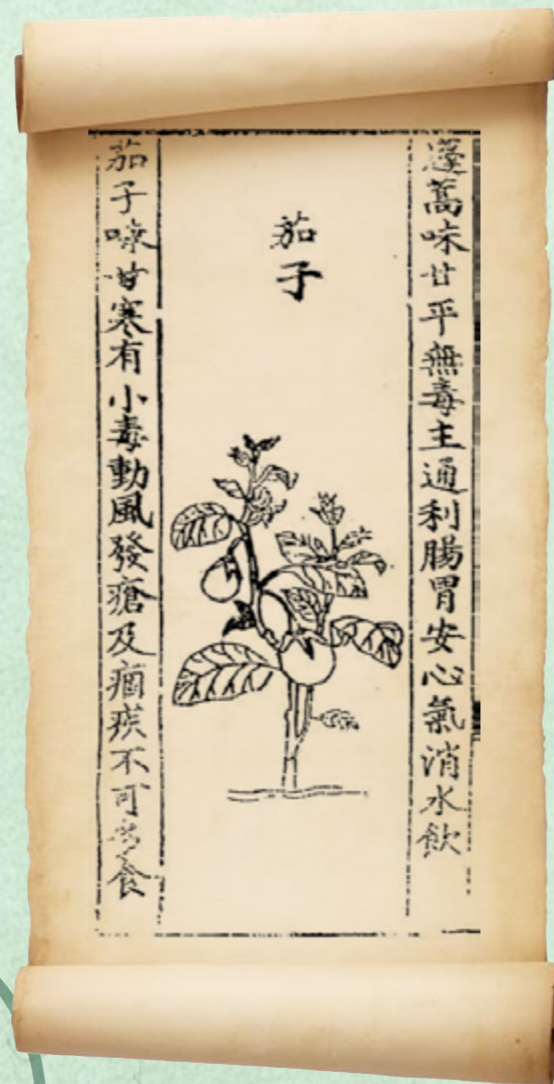 蓬蒿味甘平無毒主通利腸胃安心氣消水飲
茄子
茄子味甘寒有小毒動風發瘡及痼疾不可多食